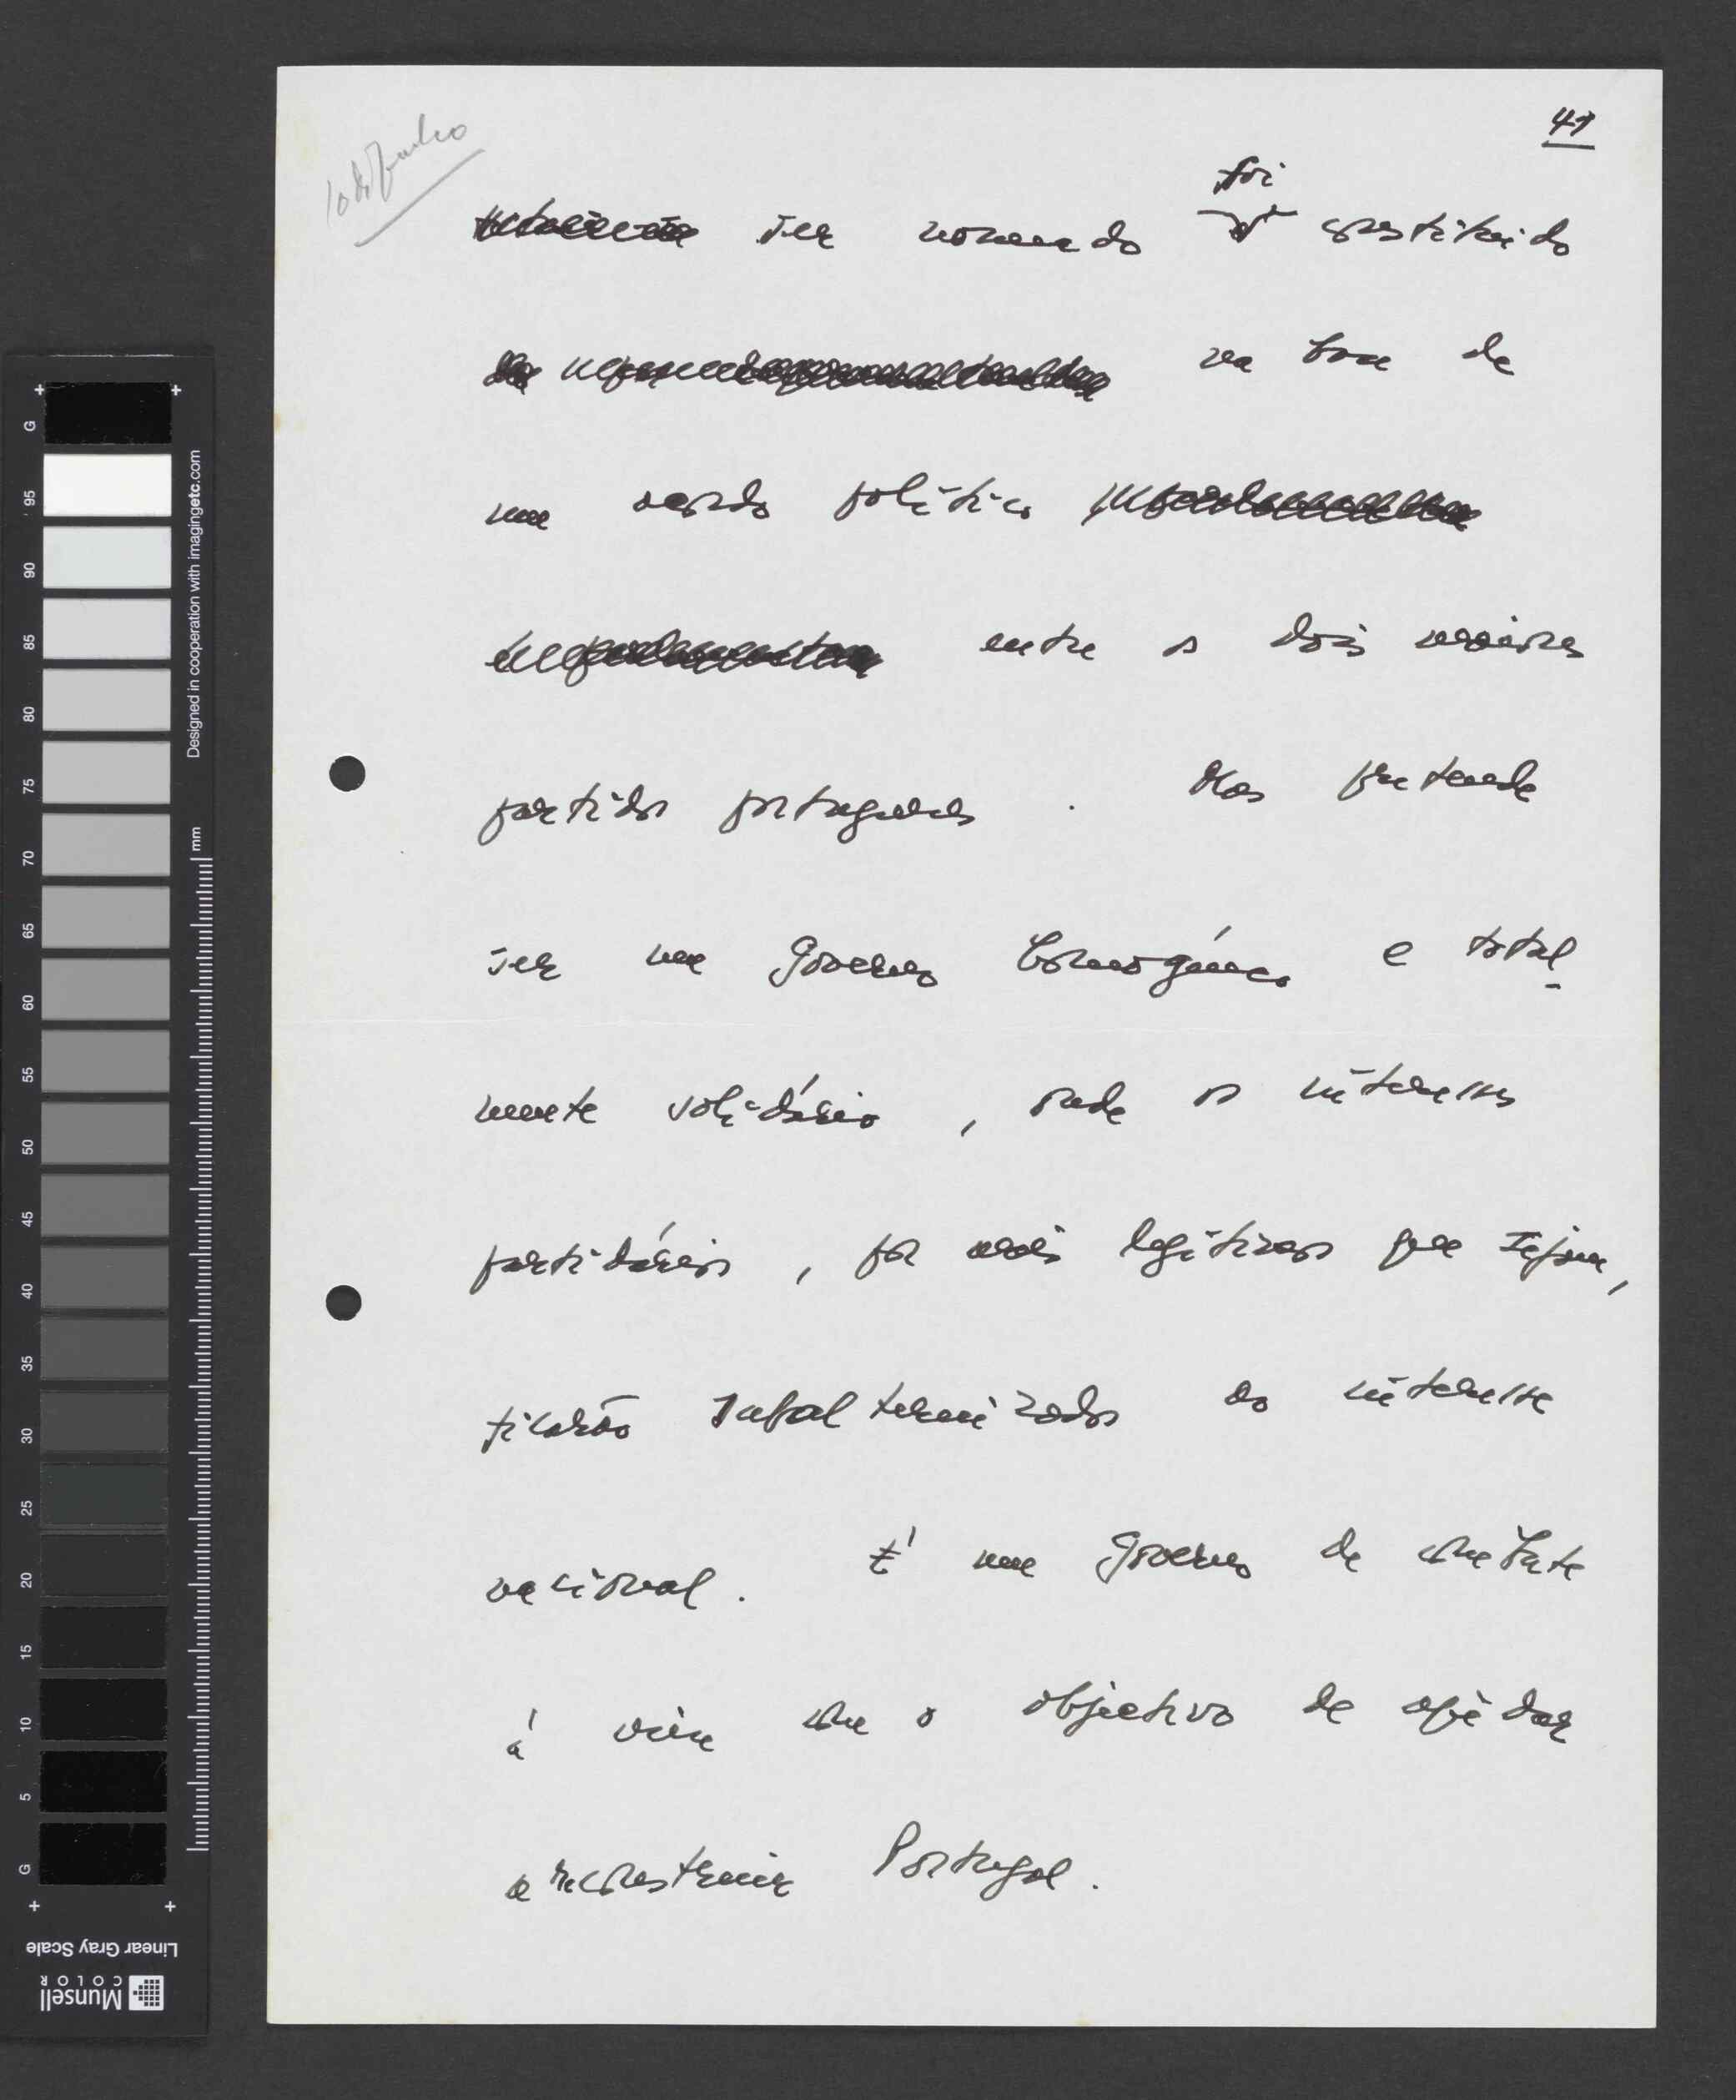 10 de Junho
41
foi
ser nomeado constituido
na base de
um acordo político
entre os dois maiores
partidos portugueses. Mas pretende
ser um Governo homogéneo e total-
mente solidário, onde os interesses
partidários, por mais legítimos que sejam,
ficarão subalternizados ao interesse
nacional. É um Governo de combate
á crise com o objectivo de ajudar
a reconstruir Portugal.
G 95 90 85 80 75 70 65 60 55 50 45 40 35 30 25 20 15 10 5 G
mm
Designed in cooperation with imagingetc.com
Linear Gray Scale
Munsell
COLOR